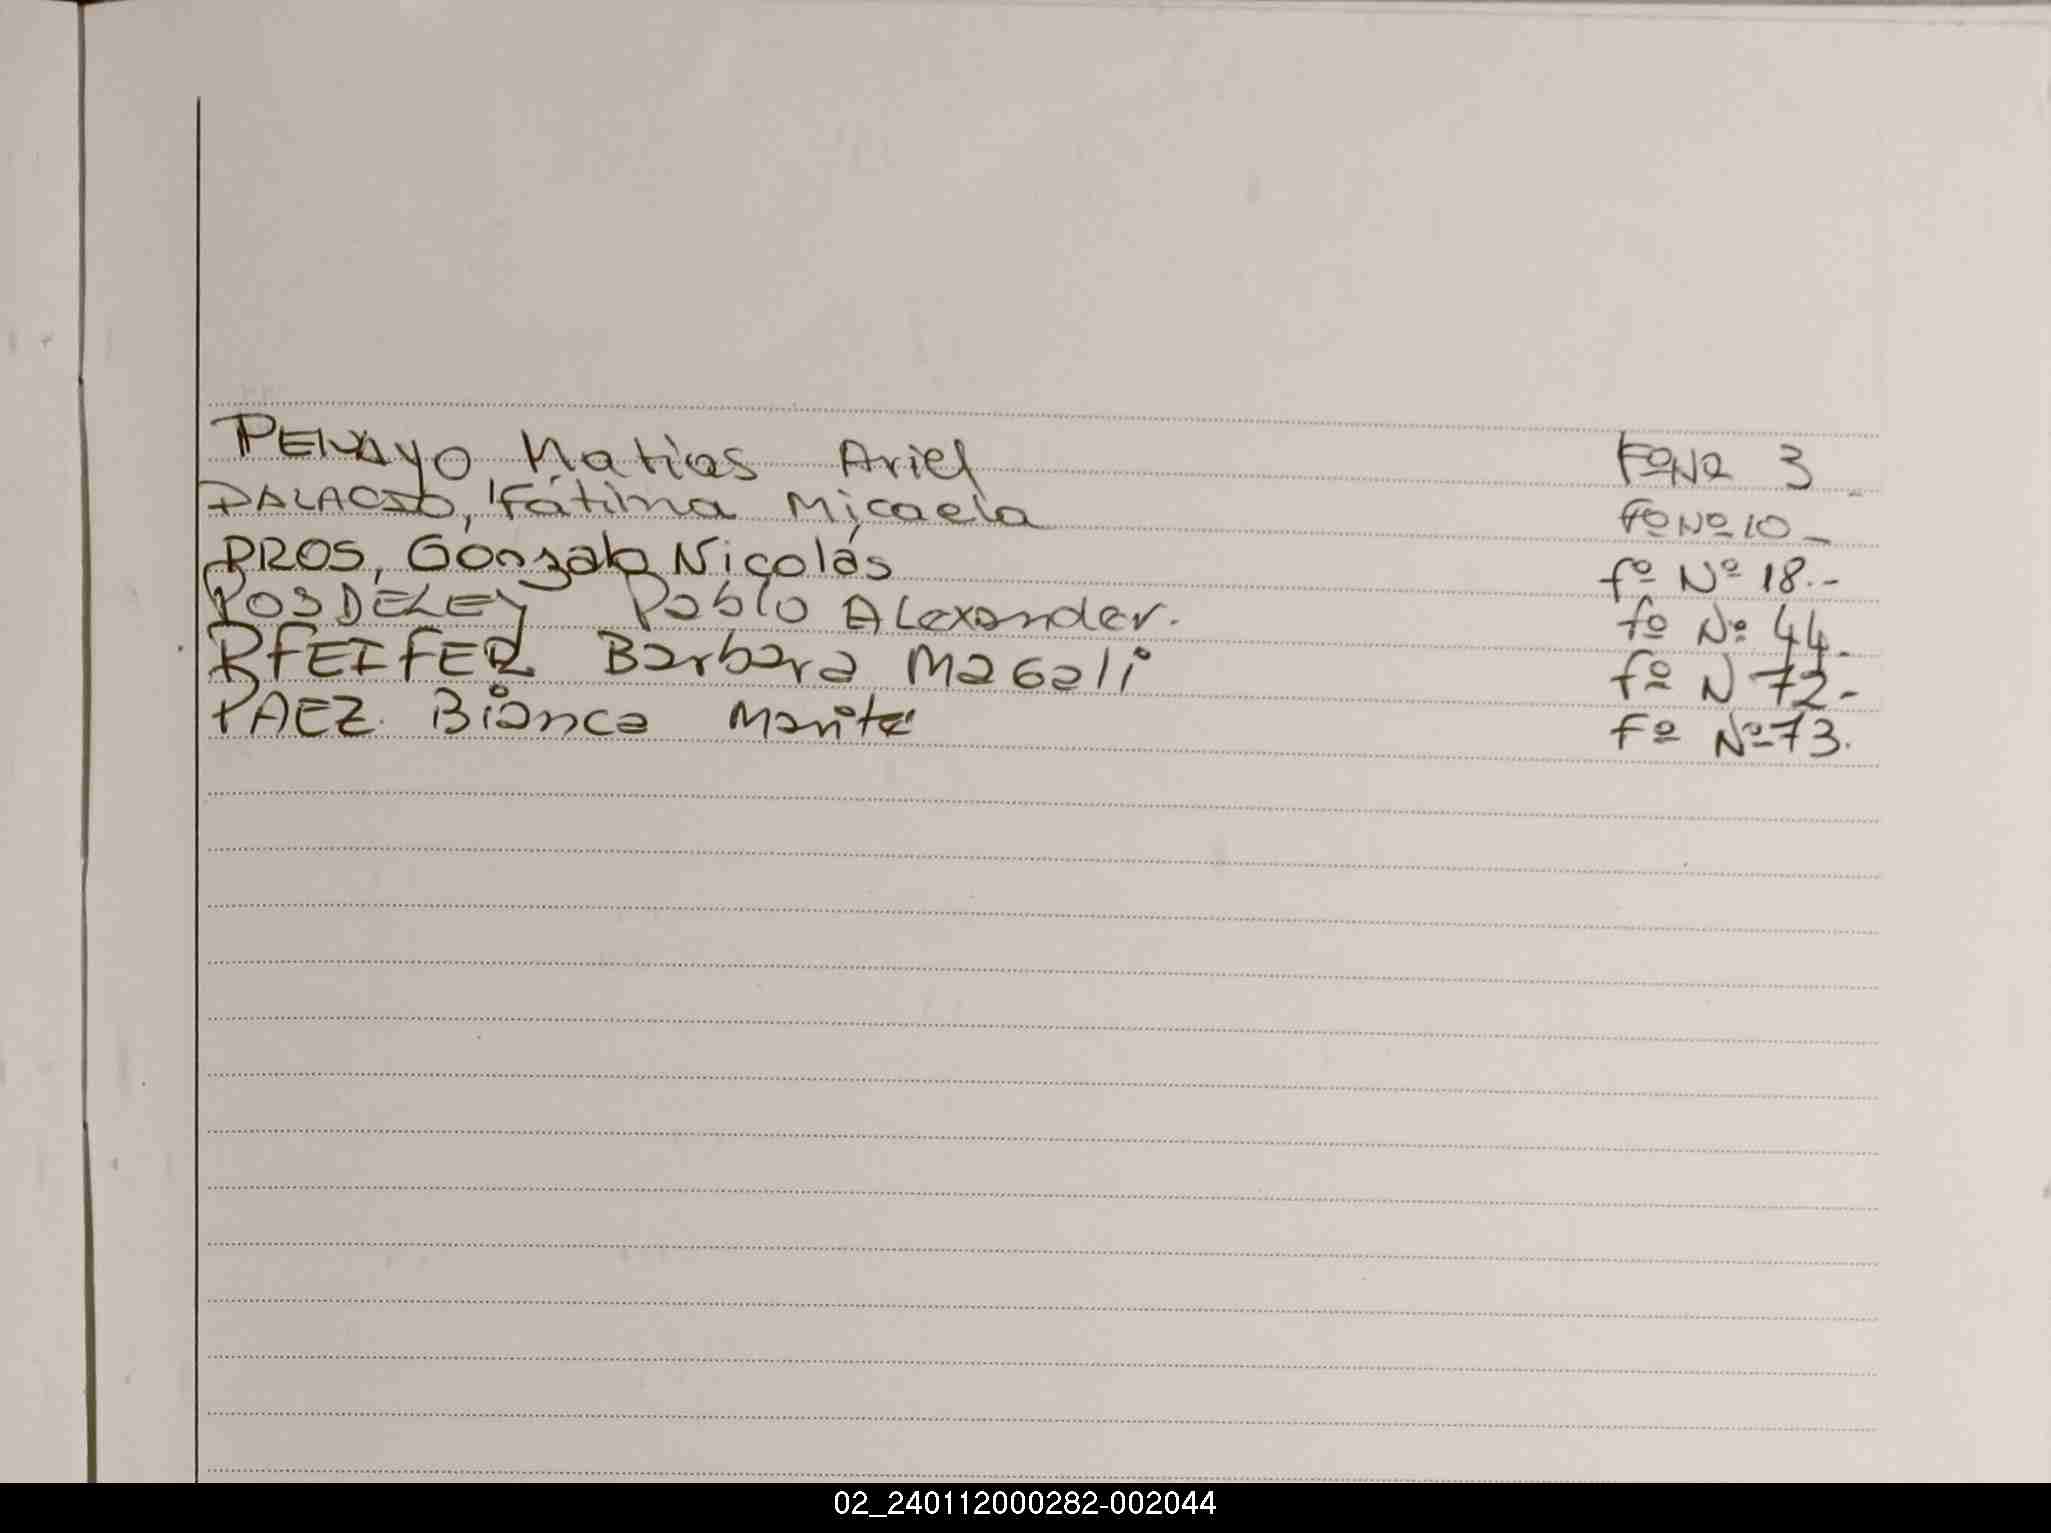 PENAYO Matias Ariel Fº Nº 3
PALACIO, Fátima Micaela Fº Nº 10
PROS, Gonzalo Nicolás fº Nº 18.-
POSDELEY Pablo Alexander. fº Nº 44.
PFEIFER Barbara Magali fº N 72-
PAEZ. Bianca Maité Fº Nº 73.
02_240112000282-002044